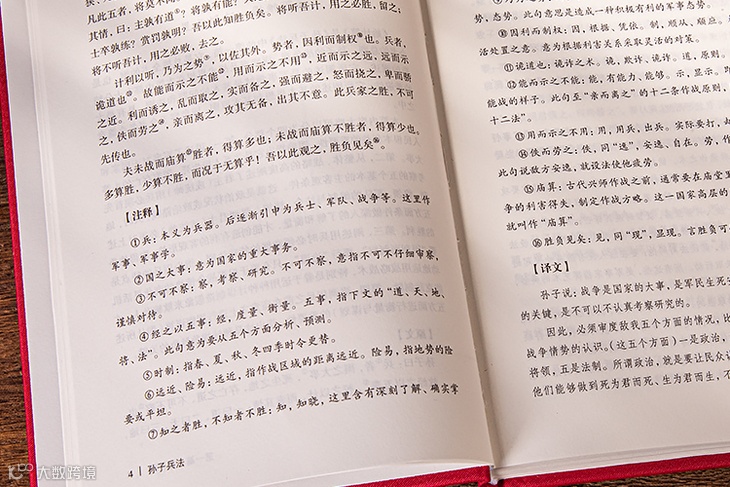 凡此五者，将莫不
其情，曰：主孰有道⑨？将孰有能？
士卒孰练？赏罚孰明？吾以此知胜负矣。将听吾计，用之必胜，留之；
将不听吾计，用之必败，去之。
计利以听，乃为之势，以佐其外。势者，因利而制权⑩也。兵者，
诡道也⑪。故能而示之不能⑫，用而示之不用⑬，近而示之远，远而示
之近。利而诱之，乱而取之，实而备之，强而避之，怒而挠之，卑而骄
之，佚而劳之⑭，亲而离之，攻其无备，出其不意。此兵家之胜，不可
先传也。
夫未战而庙算⑮胜者，得算多也；未战而庙算不胜者，得算少也。
多算胜，少算不胜，而况于无算乎！吾以此观之，胜负见矣⑯。
【注释】
①兵：本义为兵器。后逐渐引申为兵士、军队、战争等。这里作
军事、军事学。
②国之大事：意为国家的重大事务。
③不可不察：察，考察、研究。不可不察，意指不可不仔细审察，
谨慎对待。
④经之以五事：经，度量、衡量。五事，指下文的“道、天、地、
将、法”。此句意为要从五个方面分析、预测。
⑤时制：指春、夏、秋、冬四季时令更替。
⑥远近、险易：远近，指作战区域的距离远近。险易，指地势的险
要或平坦。
⑦知之者胜，不知者不胜：知，知晓，这里含有深刻了解、确实掌
4 | 孙子兵法
势，态势。此句意思是造成一种积极有利的军事态势。
⑩因利而制权：因，根据、凭依。制，顺从、顺应。
活处置之意。意为根据利害关系采取灵活的对策。
⑪诡道也：诡诈之术。诡，欺诈、诡诈。道，原则。
⑫能而示之不能：能，有能力、能够。示，显示。
能战的样子。此句至“亲而离之”的十二条作战原则，
十二法”。
⑬用而示之不用：用，用兵、出兵。实际要打，
⑭佚而劳之：佚，同“逸”，安逸、自在。劳，作
此句说敌方安逸，就设法使他疲劳。
⑮庙算：古代兴师作战之前，通常要在庙堂里
争的利害得失，制定作战方略。这一国家高层的
就叫作“庙算”。
⑯胜负见矣：见，同“现”，显现。言胜负可
【译文】
孙子说：战争是国家的大事，是军民生死安
的关键，是不可以不认真考察研究的。
因此，必须审度敌我五个方面的情况，比
战争情势的认识。（这五个方面）一是政治，
将领，五是法制。所谓政治，就是要让民众认
他们能够做到死为君而死、生为君而生，不
大数跨境